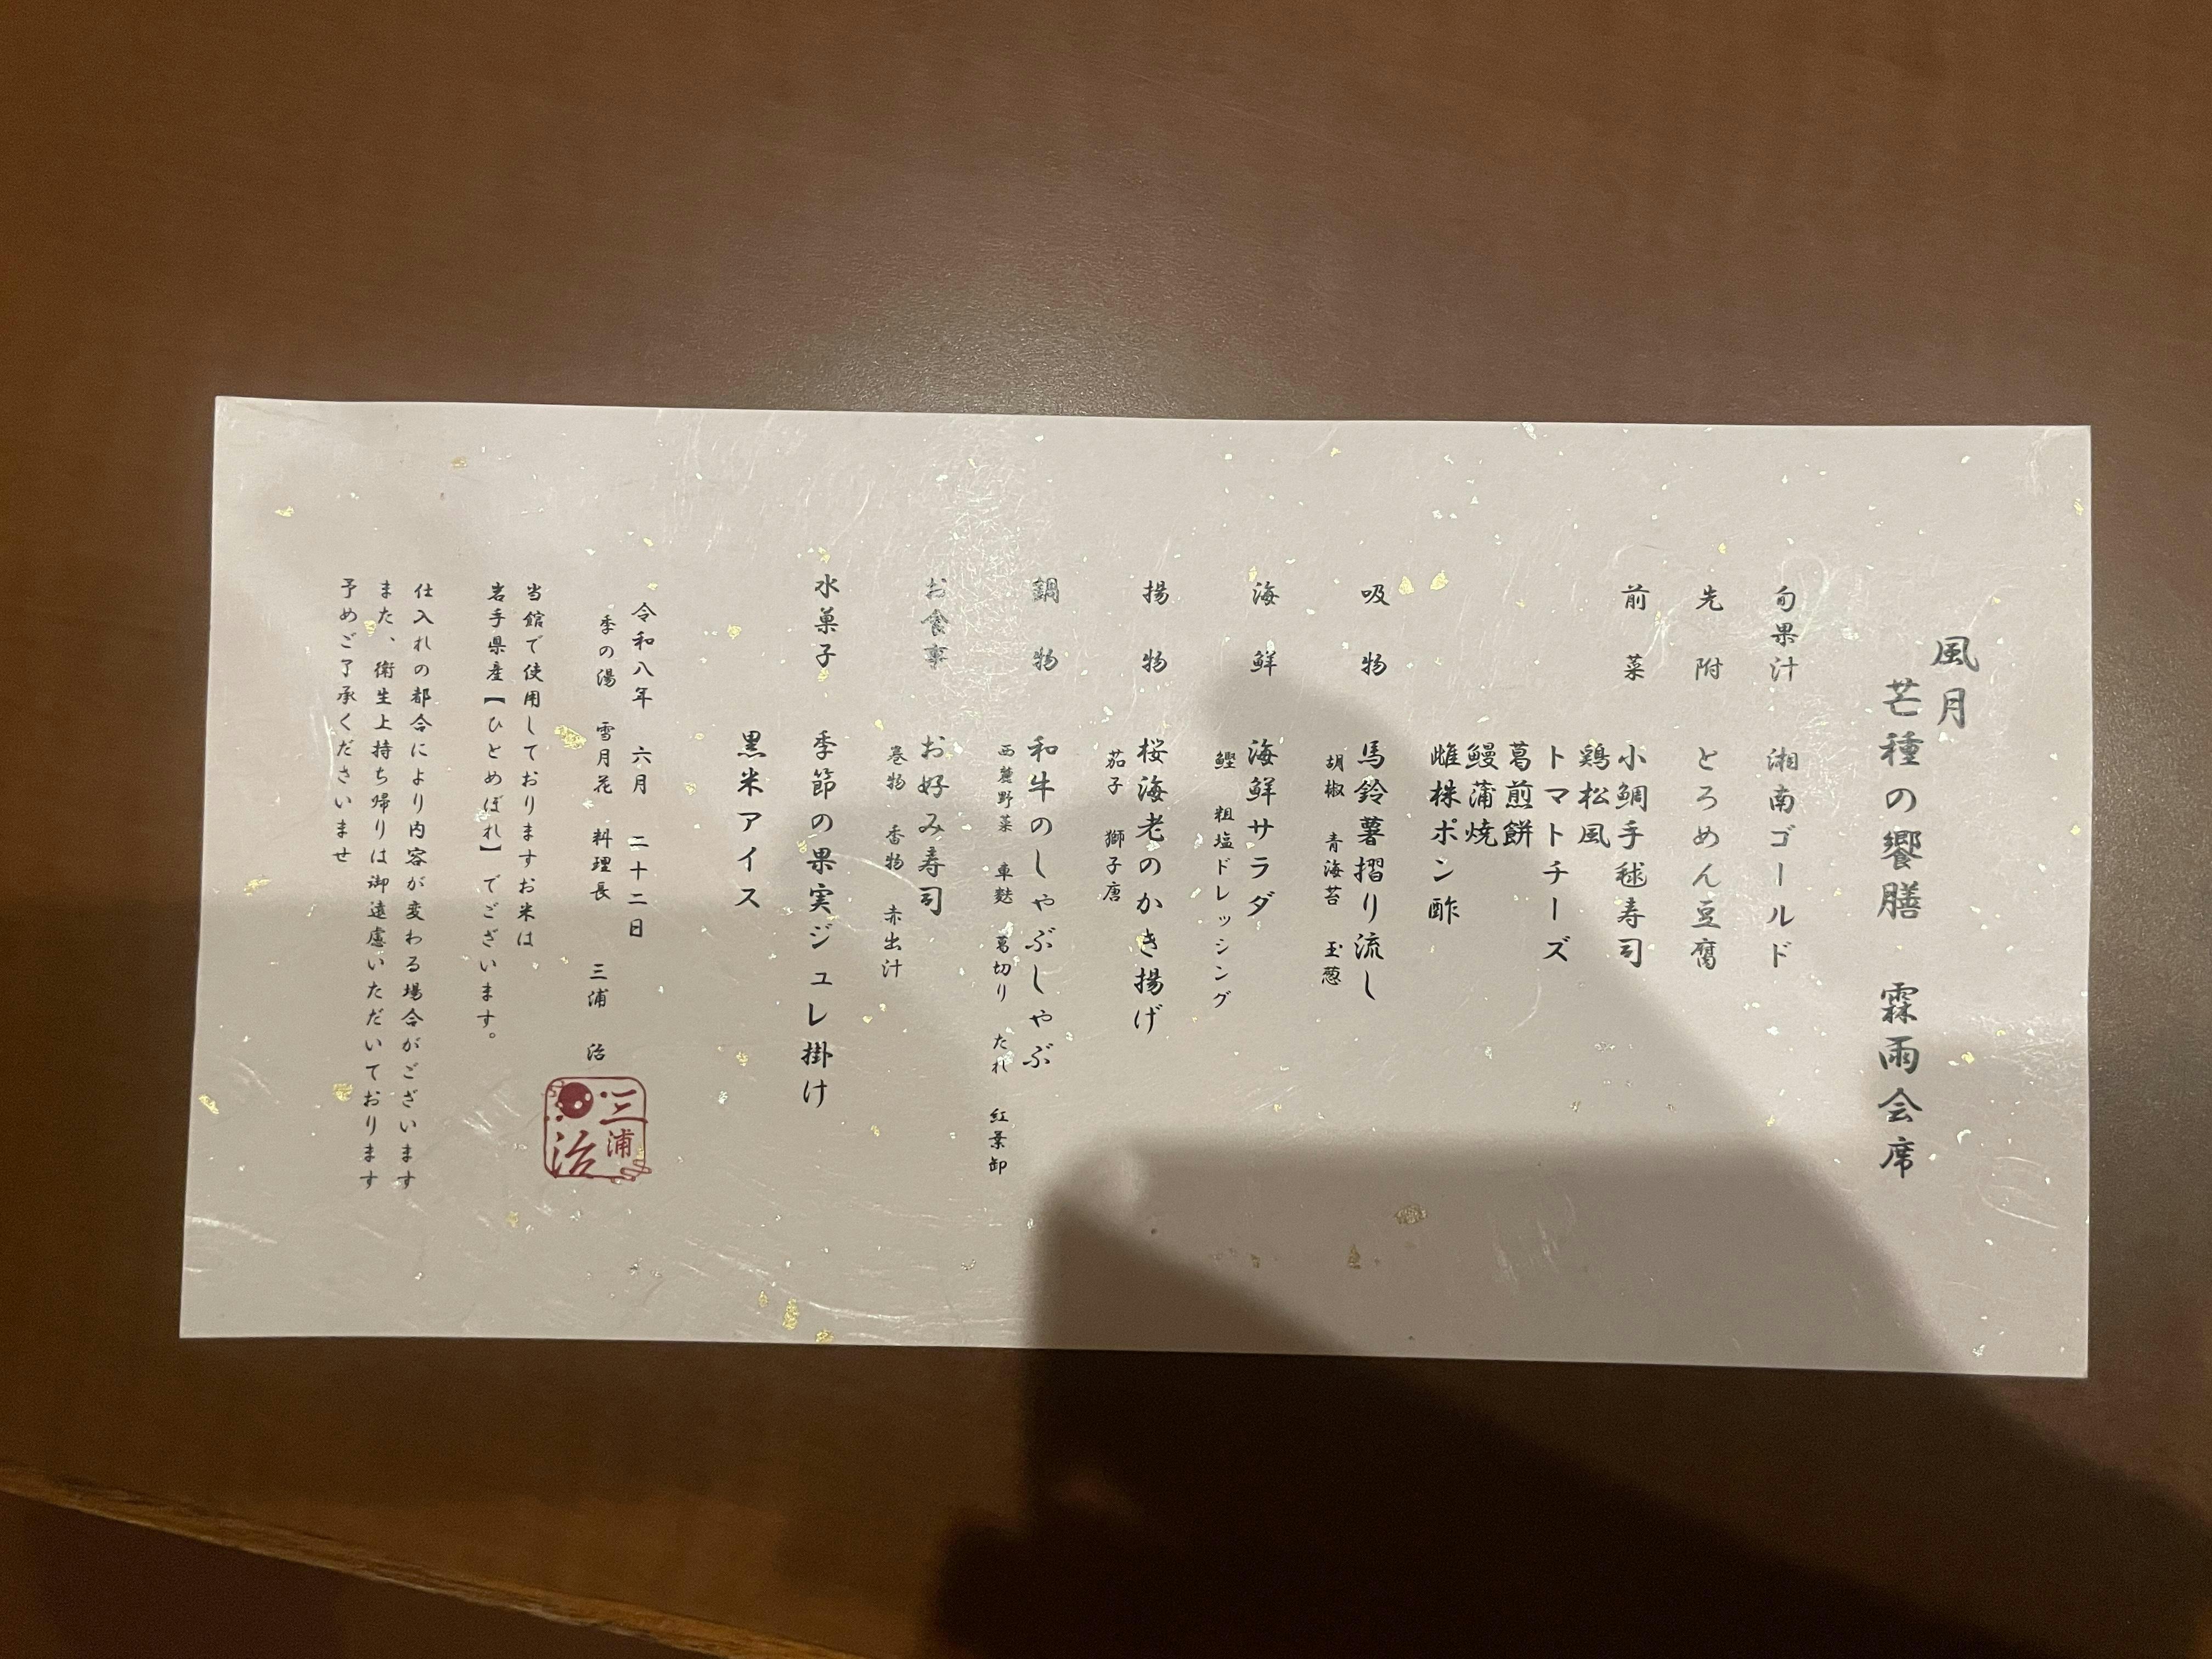 風月
芒種の饗膳　霖雨会席
旬果汁　湘南ゴールド
先附　とろめん豆腐
前菜　小鯛手毬寿司
鶏松風
トマトチーズ
葛煎餅
鰻蒲焼
雌株ポン酢
吸物　馬鈴薯摺り流し
胡椒　青海苔　玉葱
海鮮　海鮮サラダ
鰹　粗塩ドレッシング
揚物　桜海老のかき揚げ
茄子　獅子唐
鍋物　和牛のしゃぶしゃぶ
西麓野菜　車麩　葛切り　たれ　紅葉卸
お食事　お好み寿司
巻物　香物　赤出汁
水菓子　季節の果実ジュレ掛け
黒米アイス
令和八年　六月　二十二日
季の湯　雪月花　料理長　三浦　治
三浦治
当館で使用しておりますお米は
岩手県産【ひとめぼれ】でございます。
仕入れの都合により内容が変わる場合がございます
また、衛生上持ち帰りは御遠慮いただいております
予めご了承くださいませ